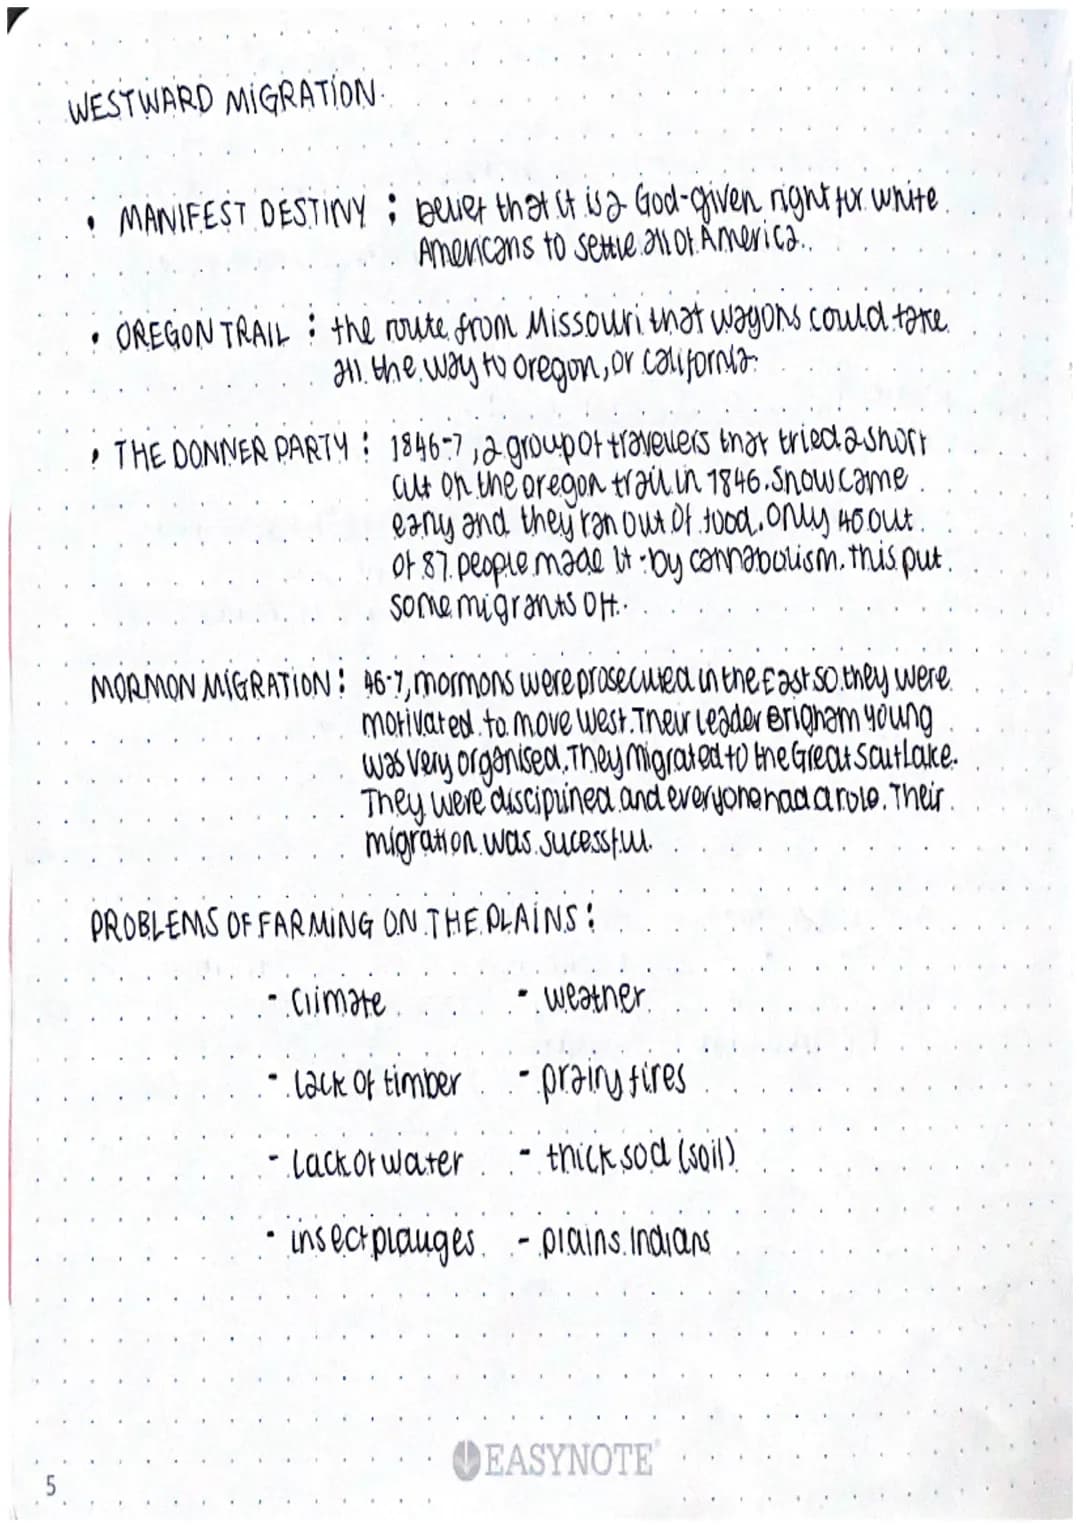 WESTWARD MIGRATION.
• MANIFEST DESTINY : belief that it is a God-given right for white
Americans to settle all of America.
• OREGON TRAIL : the route from Missouri that wagons could take
all the way to oregon, or california.
• THE DONNER PARTY : 1846-7, a group of travellers that tried a short
cut on the oregon trail in 1846. Snow came
early and they ran out of food. Only 46 out
of 87 people made it - by cannabolism. this put
some migrants off.
MORMON MIGRATION : 46-7, mormons were prosecuted in the East so they were
motivated to move West. Their leader Brigham young
was very organised. They migrated to the Great Saut Lake.
They were disciplined and everyone had a role. Their
migration was sucessful.
PROBLEMS OF FARMING ON THE PLAINS :
- climate - weather
- lack of timber - prairy fires
- lack of water - thick sod (soil)
- insect plauges - plains Indians
EASYNOTE
5